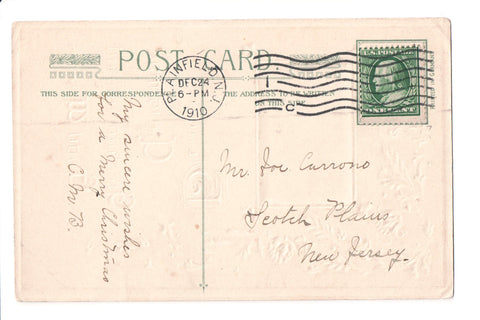 POST CARD
THIS SIDE FOR CORRESPONDENCE
THE ADDRESS TO BE WRITTEN
ON THIS SIDE
PLAINFIELD, N.J.
DEC 24
6-PM
1910
I
C
My sincere wishes
for a Merry Christmas
C. M. B.
Mr. Joe Currono
Scotch Plains
New Jersey.